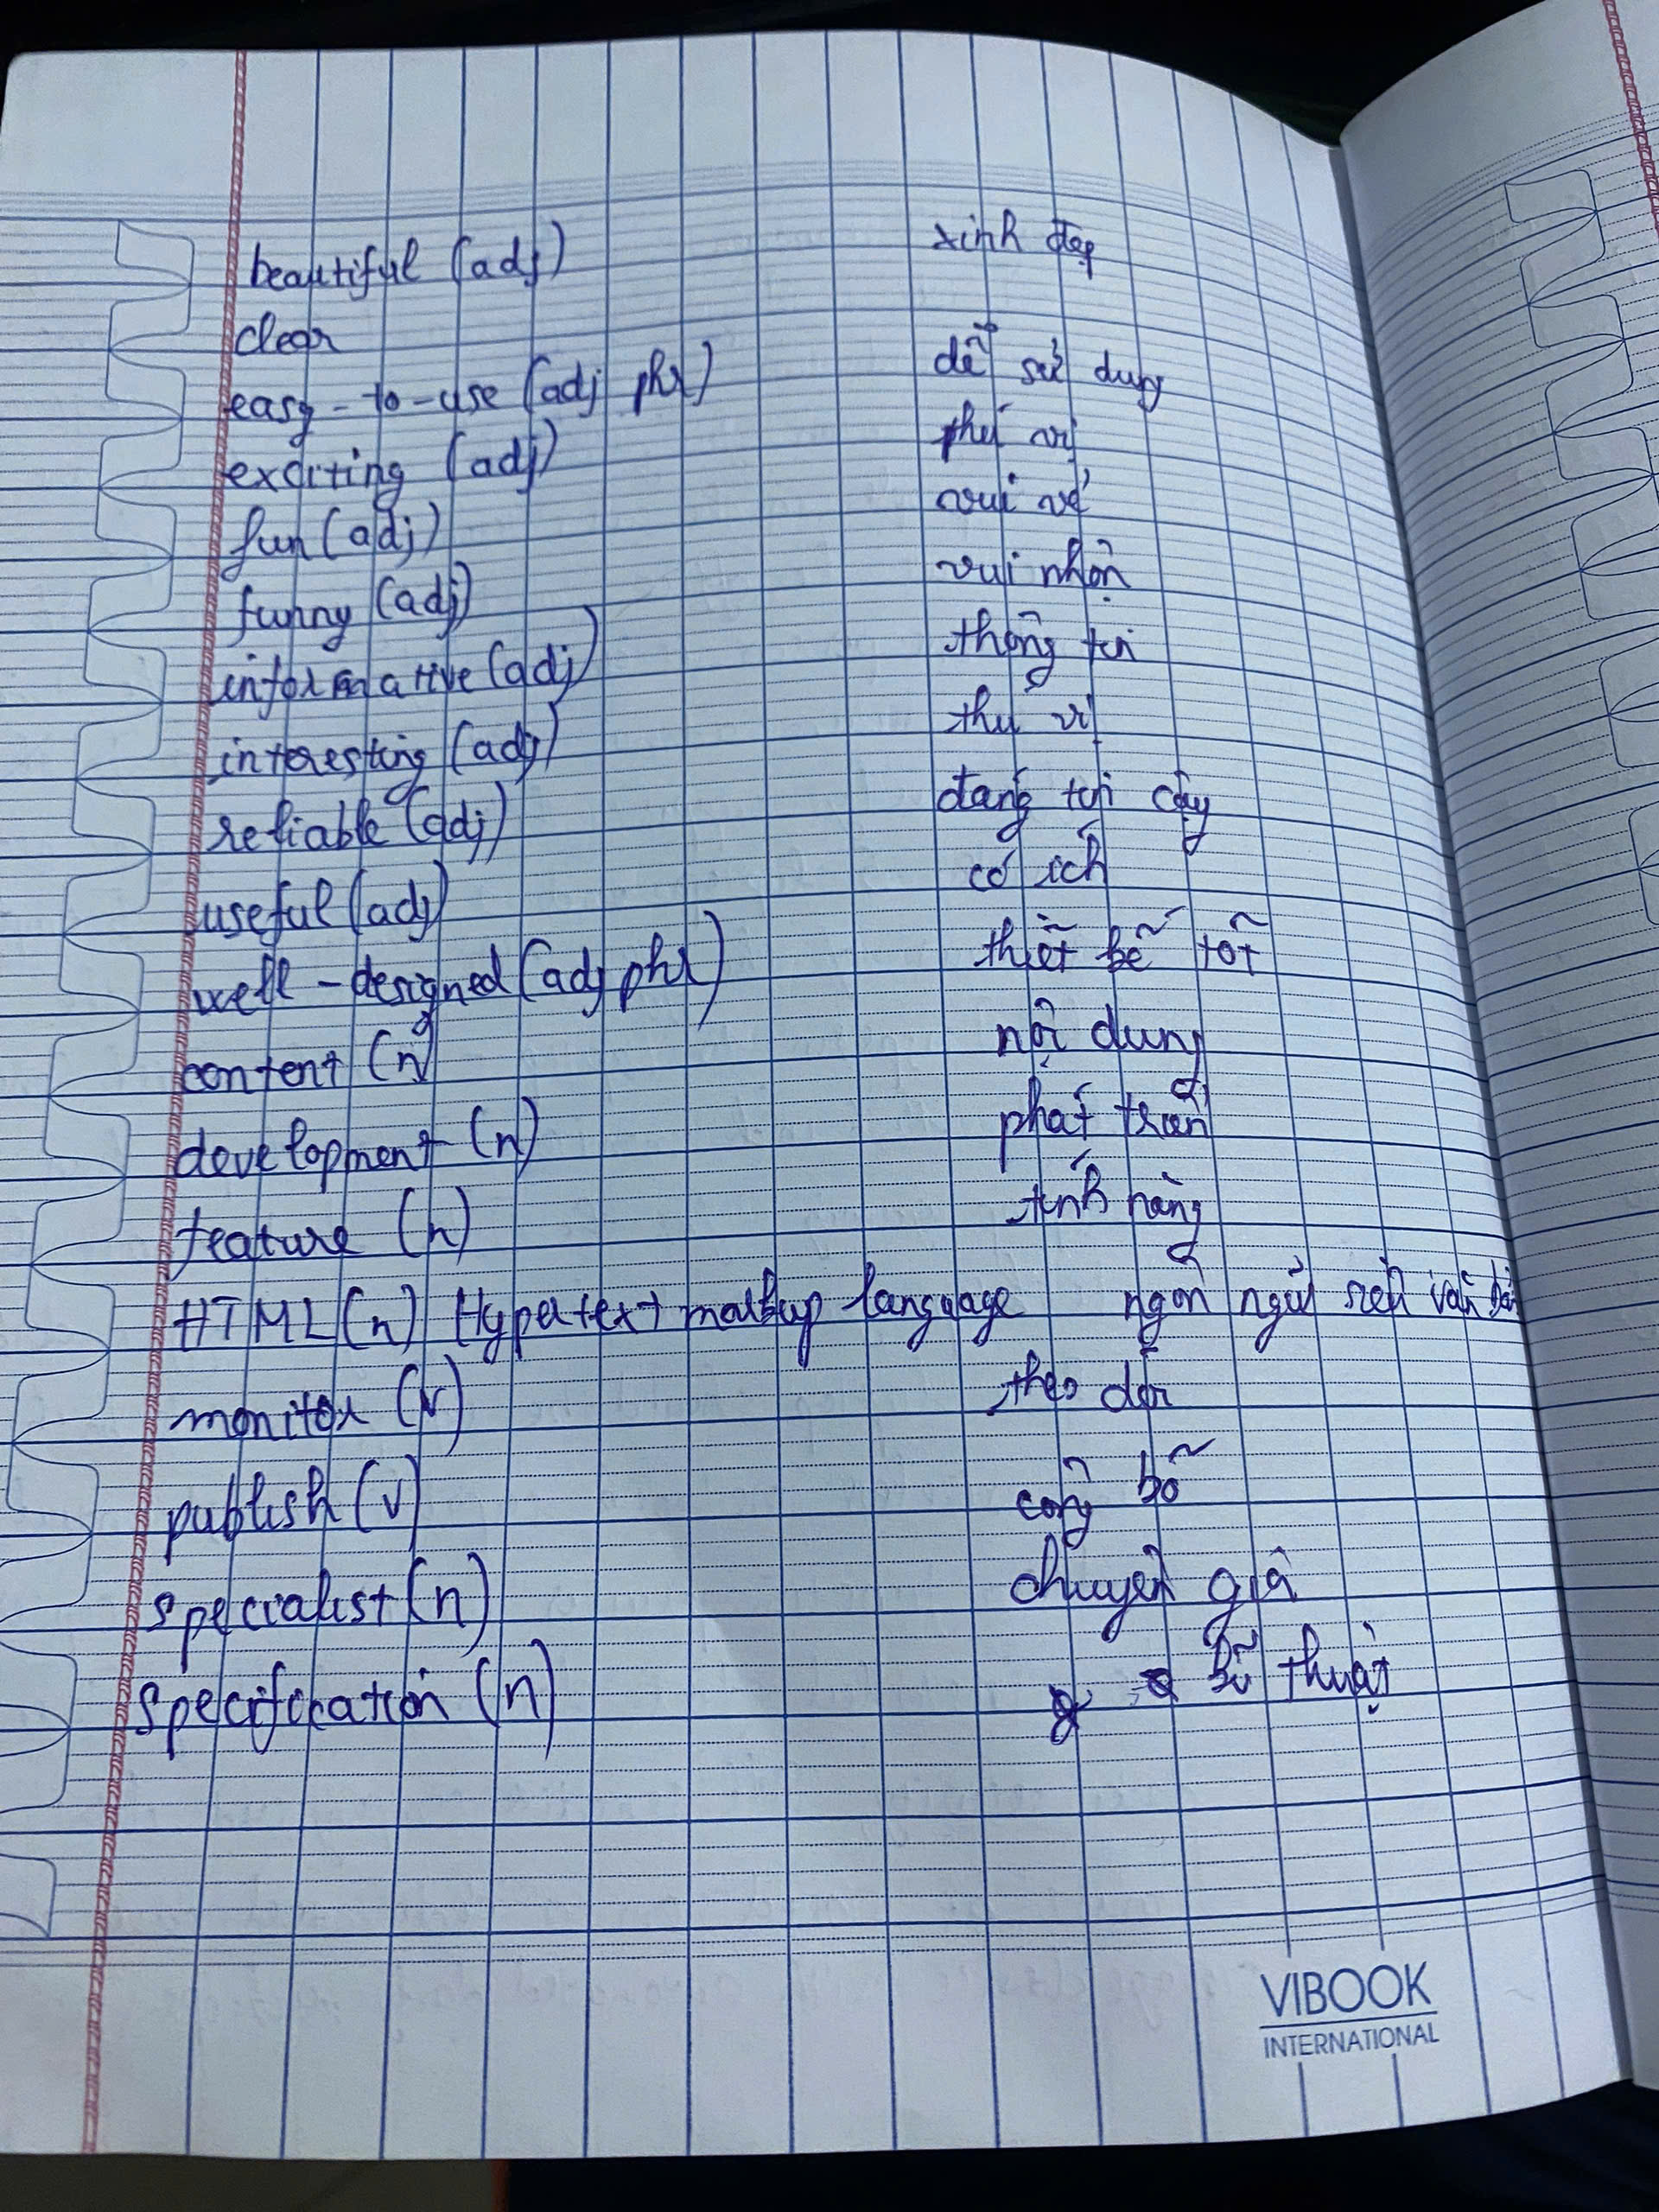 beautiful (adj) xinh đẹp
clear
easy-to-use (adj phr) dễ sử dụng
exciting (adj) thú vị
fun (adj) vui vẻ
funny (adj) vui nhộn
informative (adj) thông tin
interesting (adj) thú vị
reliable (adj) đáng tin cậy
useful (adj) có ích
well-designed (adj phr) thiết bế tốt
content (n) nội dung
development (n) phát triển
feature (n) tính năng
HTML (n) Hypertext markup language ngôn ngữ văn bản
monitor (v) theo dõi
publish (v) công bố
specialist (n) chuyên gia
specification (n) thuật
VIBOOK
INTERNATIONAL